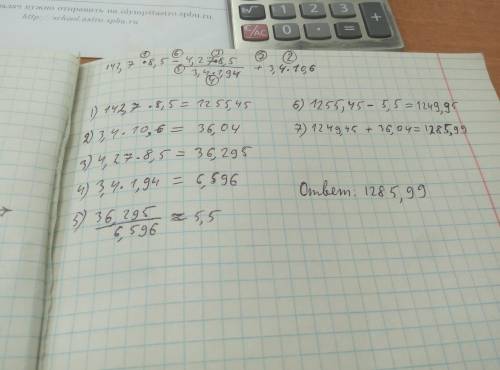 нужно отправить на olymp@astro.spbu.ru
http: school.astro.spbu.ru
① ⑥ ③ ⑦ ②
142,7 · 8,5 - 4,27·8,5 / 3,4·1,94 + 3,4·10,6
⑤ ④
1) 142,7 · 8,5 = 1255,45
2) 3,4 · 10,6 = 36,04
3) 4,27 · 8,5 = 36,295
4) 3,4 · 1,94 = 6,596
5) 36,295 / 6,596 ≈ 5,5
6) 1255,45 - 5,5 = 1249,95
7) 1249,45 + 36,04 = 1285,99
Ответ: 1285,99
1 2 3
0 . = +
C/CE
√